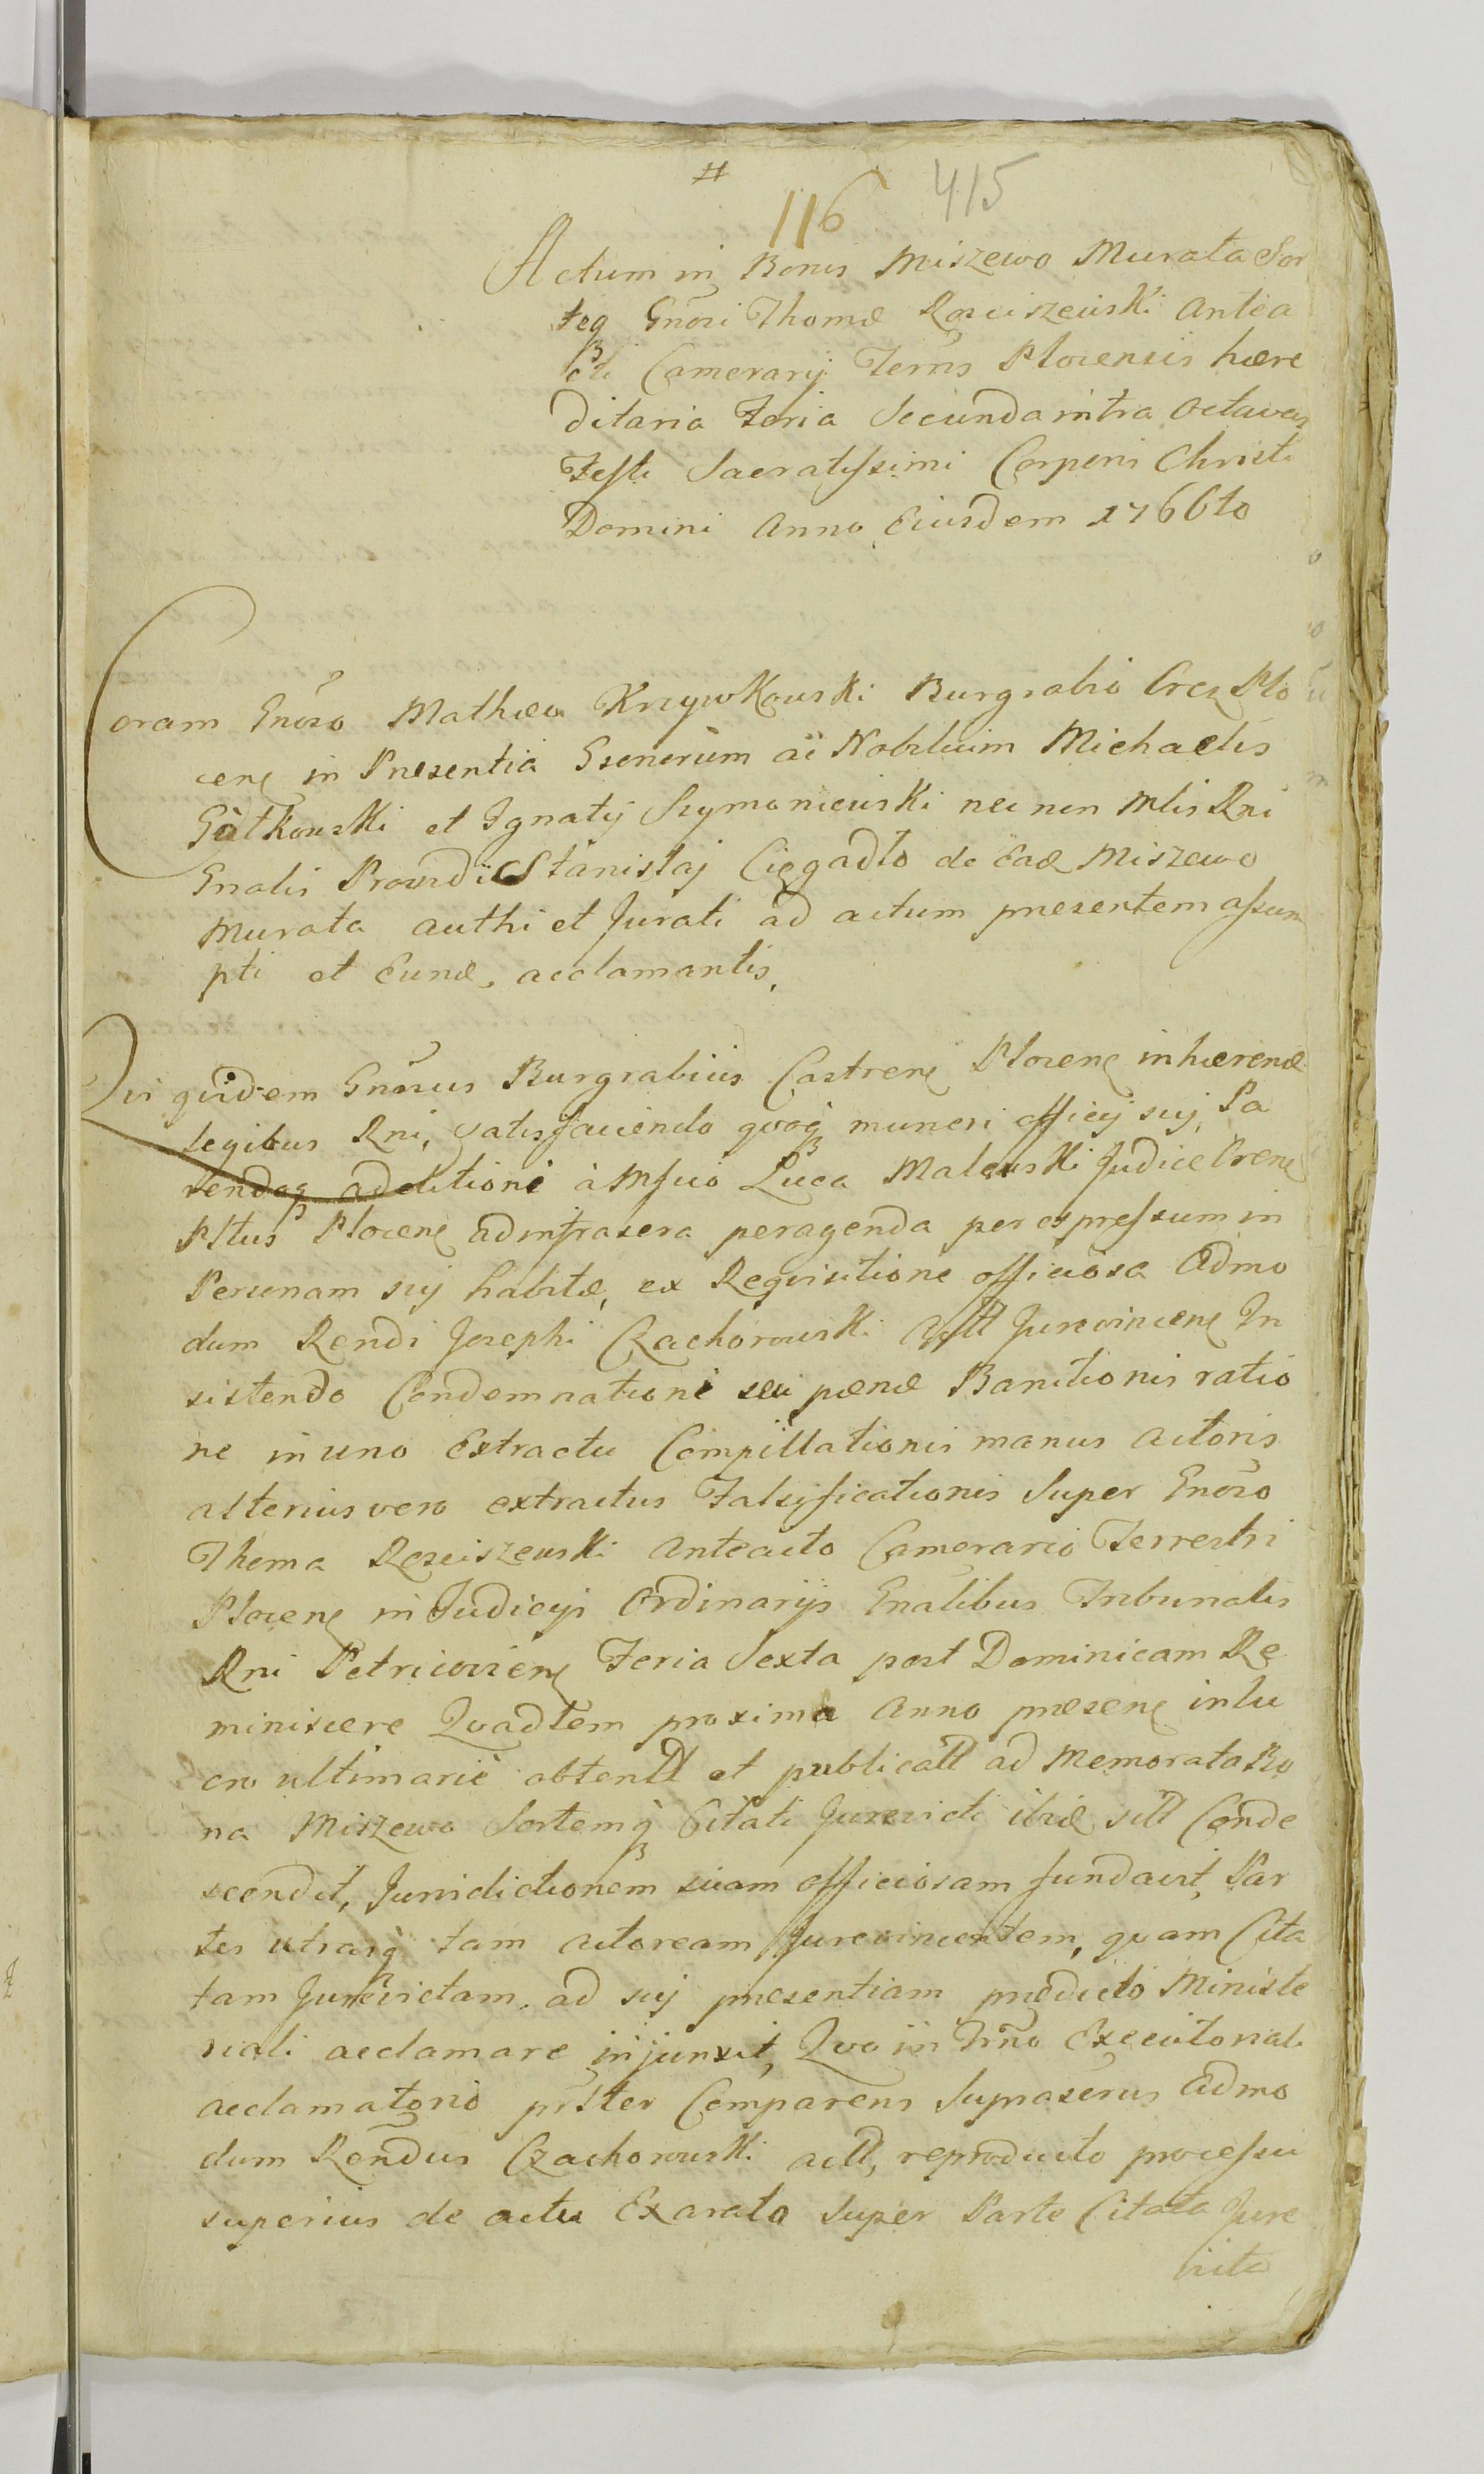 #
116 415
Actum in Bonis Miszewo Murata Sor
teq Gnõsi Thomæ Rosciszewski Antea
cti Camerarij Terris Plocensis hære
ditaria Feria Secunda intra Octavas
Festi Sacratissimi Corporis Christi
Domini Anno Eiusdem 1766to
Coram Gnõso Mathæo Krzywkowski Burgrabio Cres Plo
cen in Præsentia Gñenerum ac Nobilium Michaelis
Gutkowski et Ignatij Szymaniewski nec non Mlis Rni
Gnalis Providi Stanislaj Cięgadło de Ead Miszewo
Murata authi et Jurati ad actum præsentem assum
pti et Eund acclamantis,
Qui quidem Gnõsus Burgrabius Castren Plocen inhærend
legibus Rni, satisfaciendo quoq muneri officij sui, Pa
rendoq additioni à Mfico Luca Malewski Judice Cren
Pltus Plocen ad infrascra peragenda per expressum in
Personam sui habitæ, ex Requisitione officiosa Admo
dum Rendi Josephi Czachorowski Jurevincen In
sistendo Condemnationi seu pœnæ Banitionis ratio
ne in uno Extractu Compillationis manus actoris
alterius vero extractus Falsificationis Super Gnõso
Thoma Rosciszewski Anteacto Camerario Terrestri
Plocen in Judicijs Ordinarijs Gnalibus Tribunalis
Rni Petricovien Feria Sexta post Dominicam Re
miniscere Quadlem proxima Anno præsen in lu
cro ultimarie obtentt et publicatt ad Memorata Bo
na Miszewo Sortemq Citati Jurevicti ibid sitt Conde
scendit, Jurisdictionem suam officiosam fundavit, Par
tes utrasq tam actoream Jurevincentem, quam Cita
tam Jurevictam, ad sui præsentiam prædicto Ministe
riali acclamare injunxit, Quo in Trno Executoriali
acclamatorio prlter Comparens Suprascrus Admo
dum Rendus Czachorowski act, reproducto processu
superius de actu Exarato Super Parte Citata Jure
victa